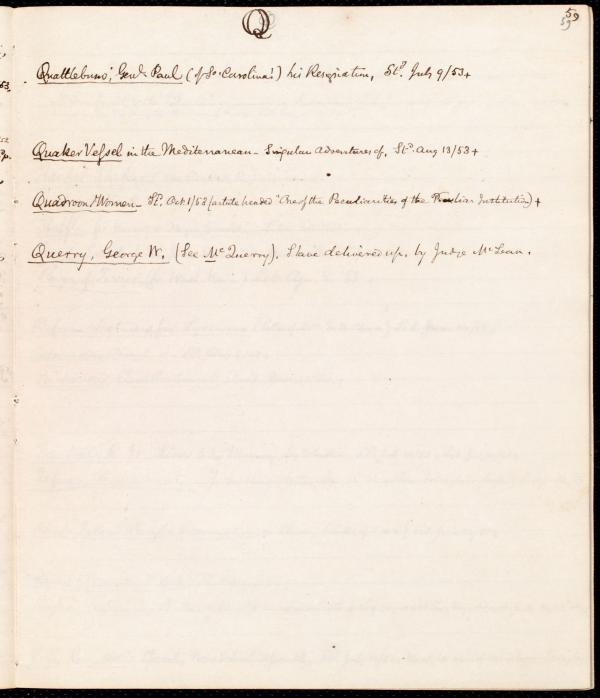 Q
59
59
Quattlebum, Genl. Paul (of So. Carolina!) his Resignation, Std. July 9/53 +
Quaker Vessel in the Mediterranean - Singular Adventures of, Std. Aug 13/53 +
Quadroon Women - Std. Oct 1/53 (article headed "One of the Peculiarities of the Peculiar Institution) +
Querry, George W. (See McQuerry). Slave delivered up, by Judge McLean.